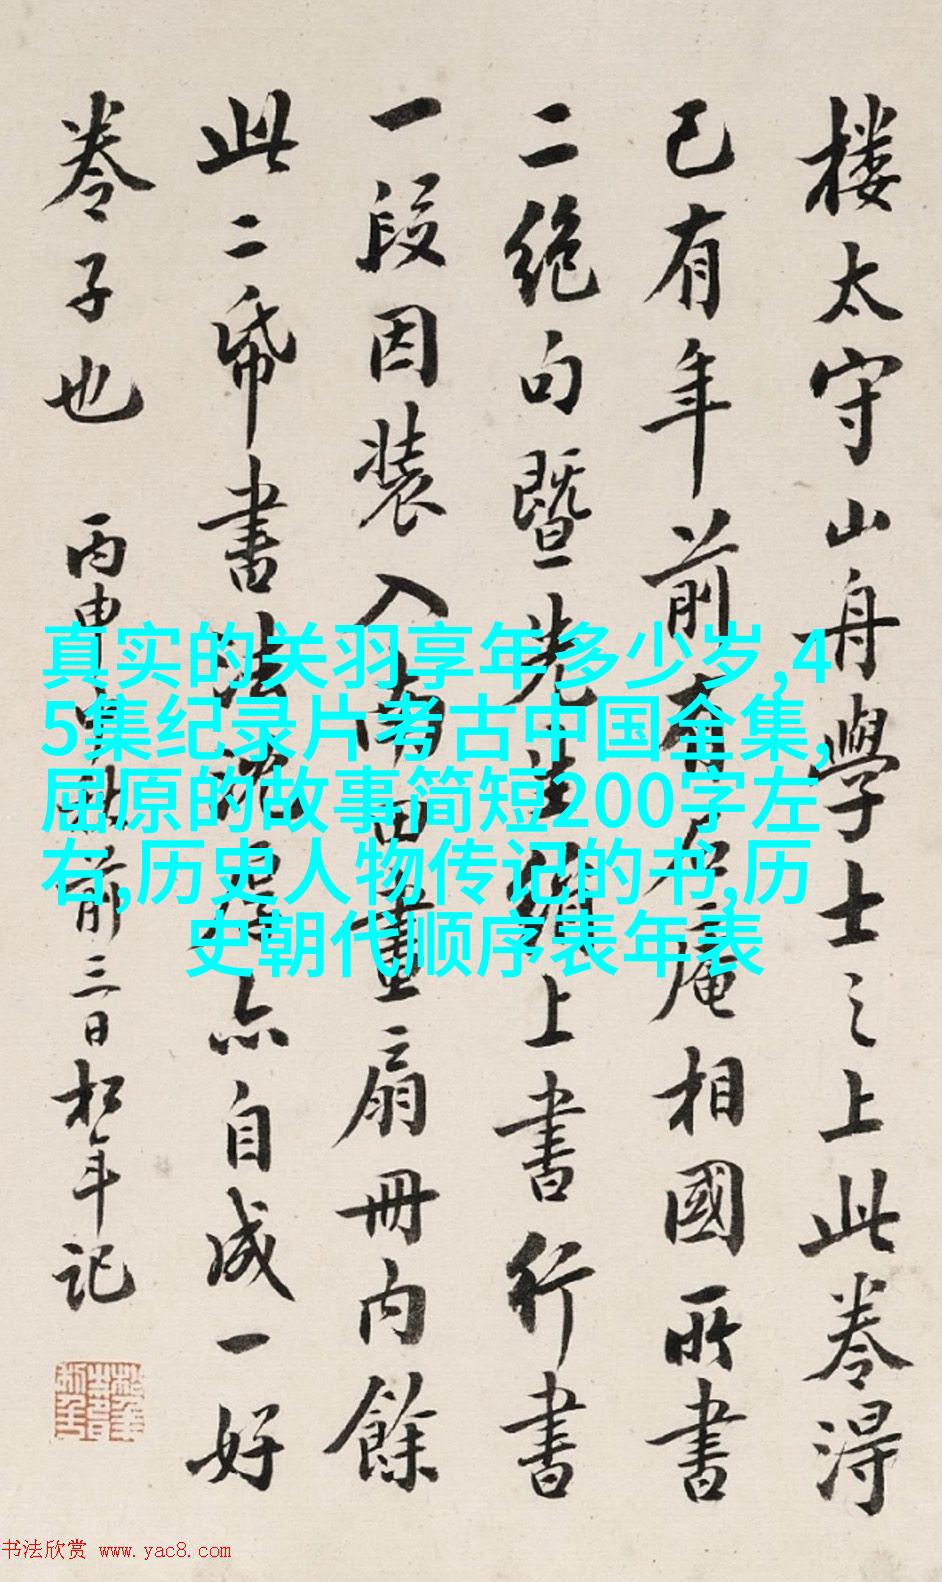 楼太守山舟學士之上此卷淂
已有年前有庵相國所書
二絶句暨先生上書行書
一段因装入南田畫扇冊内餘
此二帋書法亦自成一好
卷子也 丙申中秋前三日松年記
真实的关羽享年多少岁,4
5集纪录片考古中国全集,
屈原的故事简短200字左
右,历史人物传记的书,历
史朝代顺序表年表
书法欣赏 www.yac8.com